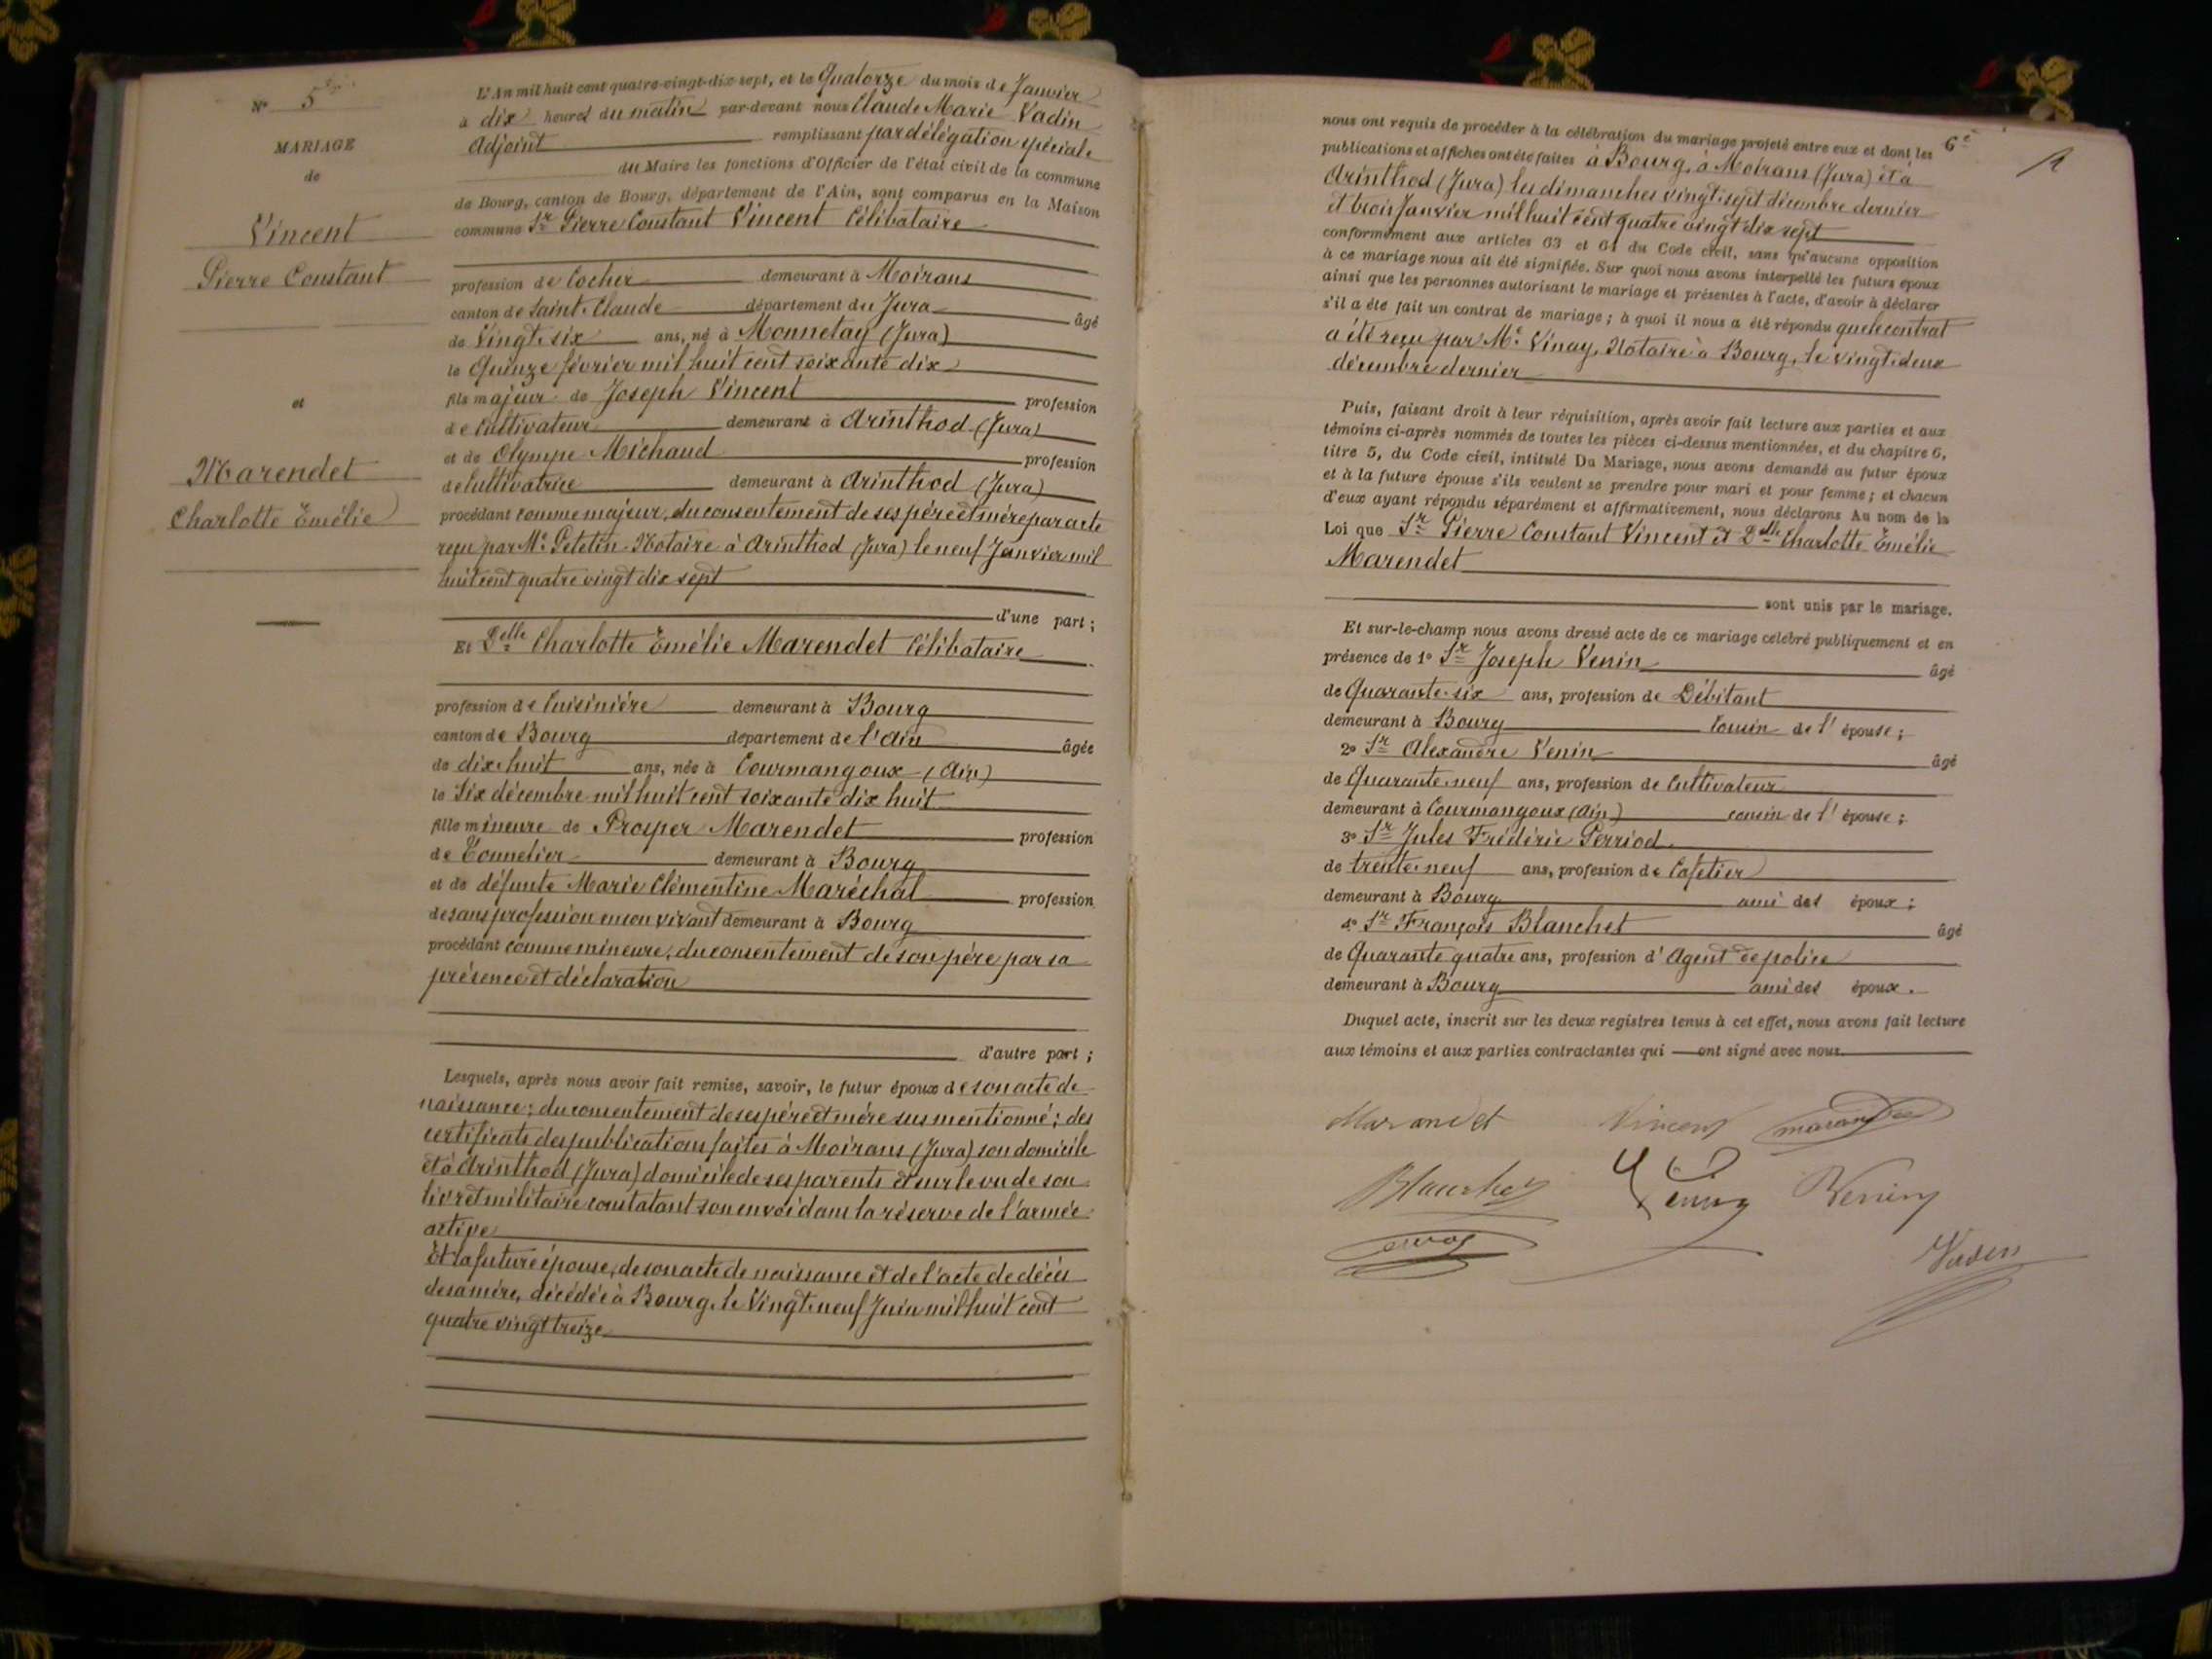 N° 5
MARIAGE
de
Vincent
Pierre Constant
et
Marendet
Charlotte Émélie
L'An mil huit cent quatre-vingt-dix-sept, et le Quatorze du mois de Janvier
à dix heures du matin par-devant nous Claude Marie Vadin
Adjoint remplissant par délégation spéciale
du Maire les fonctions d'Officier de l'état civil de la commune
de Bourg, canton de Bourg, département de l'Ain, sont comparus en la Maison
commune Sr Pierre Constant Vincent Célibataire
profession de Cocher demeurant à Moirans
canton de Saint-Claude département du Jura âgé
de Vingt-six ans, né à Monnetay (Jura)
le Quinze février mil huit cent soixante dix
fils majeur de Joseph Vincent profession
de Cultivateur demeurant à Arinthod (Jura)
et de Olympe Michaud profession
de Cultivatrice demeurant à Arinthod (Jura)
procédant comme majeur, du consentement de ses père et mère par acte
reçu par Me Petetin Notaire à Arinthod (Jura) le neuf Janvier mil
huit cent quatre vingt dix sept
d'une part ;
Et Delle Charlotte Émélie Marendet Célibataire
profession de Cuisinière demeurant à Bourg
canton de Bourg département de l'Ain âgée
de dix-huit ans, née à Courmangoux (Ain)
le Six décembre mil huit cent soixante dix huit
fille mineure de Prosper Marendet profession
de Tonnelier demeurant à Bourg
et de défunte Marie Clémentine Maréchal profession
de sans profession en son vivant demeurant à Bourg
procédant comme mineure, du consentement de son père par sa
présence et déclaration
d'autre part ;
Lesquels, après nous avoir fait remise, savoir, le futur époux de son acte de
naissance ; du consentement de ses père et mère sus mentionné ; des
certificats des publications faites à Moirans (Jura) son domicile
et à Arinthod (Jura) domicile de ses parents et sur le vu de son
livret militaire constatant son envoi dans la réserve de l'armée
active
Et la future épouse, de son acte de naissance et de l'acte de décès
de sa mère, décédée à Bourg, le Vingt-neuf Juin mil huit cent
quatre vingt treize
6e
nous ont requis de procéder à la célébration du mariage projeté entre eux et dont les
publications et affiches ont été faites à Bourg, à Moirans (Jura) et à
Arinthod (Jura) les dimanches vingt-sept décembre dernier
et trois Janvier mil huit cent quatre vingt dix sept
conformément aux articles 63 et 64 du Code civil, sans qu'aucune opposition
à ce mariage nous ait été signifiée. Sur quoi nous avons interpellé les futurs époux
ainsi que les personnes autorisant le mariage et présentes à l'acte, d'avoir à déclarer
s'il a été fait un contrat de mariage ; à quoi il nous a été répondu que le contrat
a été reçu par Me Vinay, Notaire à Bourg, le vingt-deux
décembre dernier
Puis, faisant droit à leur réquisition, après avoir fait lecture aux parties et aux
témoins ci-après nommés de toutes les pièces ci-dessus mentionnées, et du chapitre 6,
titre 5, du Code civil, intitulé Du Mariage, nous avons demandé au futur époux
et à la future épouse s'ils veulent se prendre pour mari et pour femme ; et chacun
d'eux ayant répondu séparément et affirmativement, nous déclarons Au nom de la
Loi que Sr Pierre Constant Vincent et Delle Charlotte Émélie
Marendet
sont unis par le mariage.
Et sur-le-champ nous avons dressé acte de ce mariage célébré publiquement et en
présence de 1° Sr Joseph Venin âgé
de Quarante-six ans, profession de Débitant
demeurant à Bourg Cousin de l'épouse ;
2° Sr Alexandre Venin âgé
de Quarante-neuf ans, profession de Cultivateur
demeurant à Courmangoux (Ain) cousin de l'épouse ;
3° Sr Jules Frédéric Perriod
de trente-neuf ans, profession de Cafetier
demeurant à Bourg ami des époux ;
4° Sr François Blanchet âgé
de Quarante quatre ans, profession d'Agent de police
demeurant à Bourg ami des époux.
Duquel acte, inscrit sur les deux registres tenus à cet effet, nous avons fait lecture
aux témoins et aux parties contractantes qui ont signé avec nous.
Marendet Vincent Marendet
Blanchet Venin Venin
Vadin